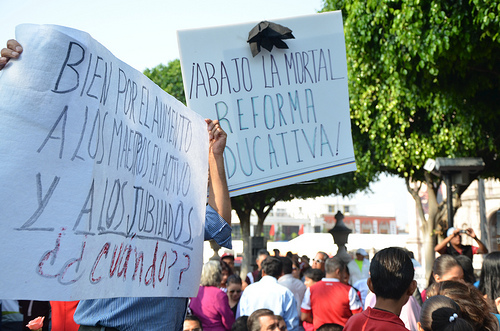 BIEN POR EL AUMENTO
A LOS MAESTROS EN ACTIVO
Y A LOS JUBILADOS
¿¿CUANDO??
¡ABAJO LA MORTAL
REFORMA
EDUCATIVA!